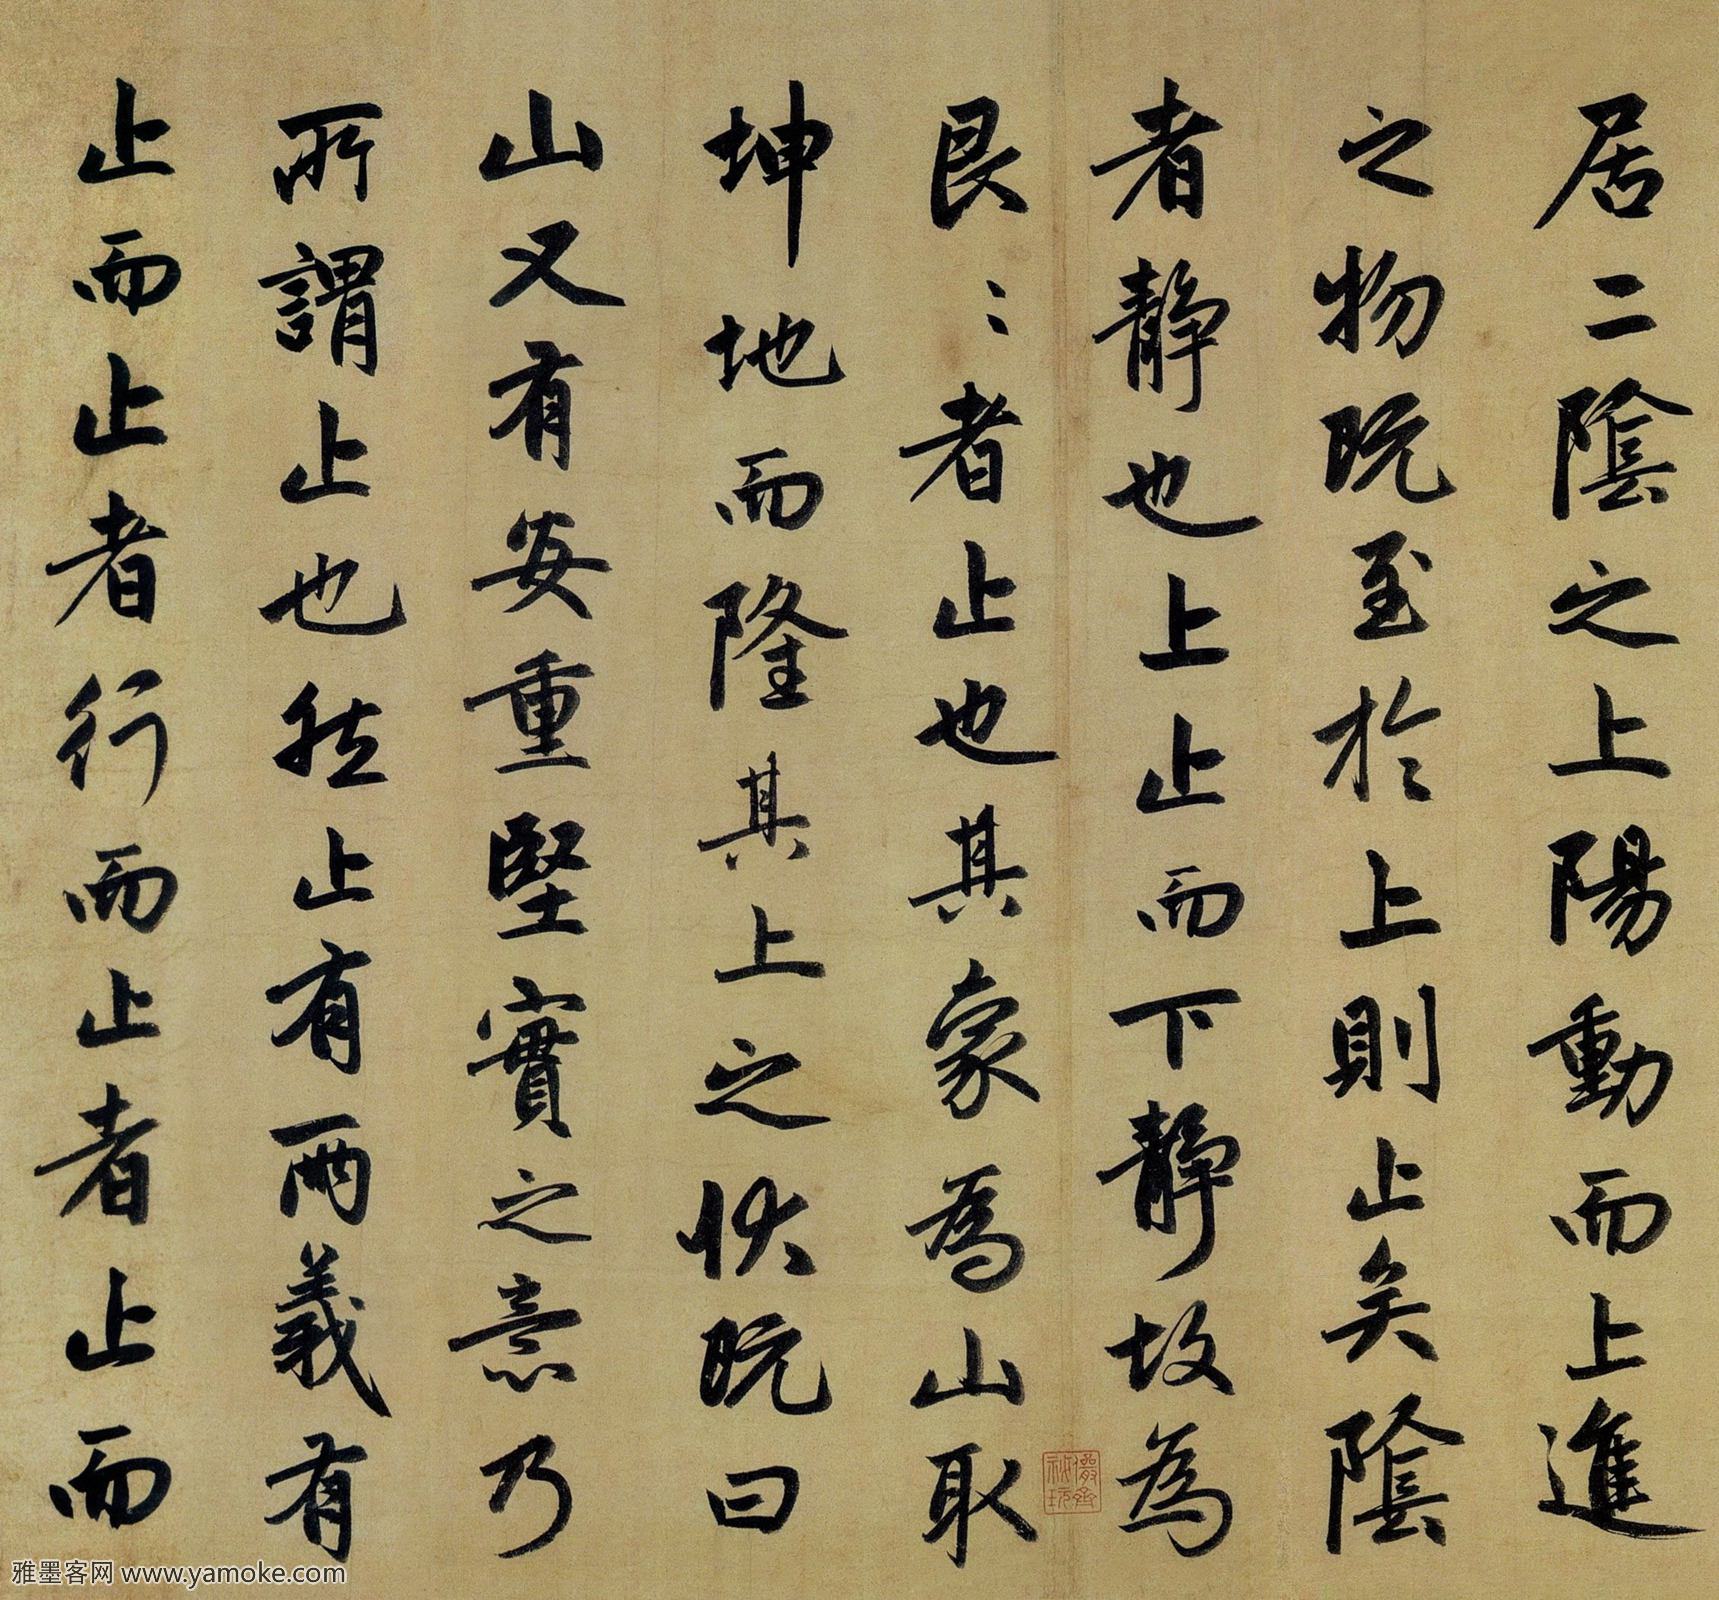 居二陰之上陽動而上進
之物既至於上則止矣陰
者靜也上止而下靜故為
艮〻者止也其象為山取
坤地而隆其上之狀既曰
山又有安重堅實之意乃
所謂止也然止有兩義有
止而止者行而止者止而
雅墨客网 www.yamoke.com